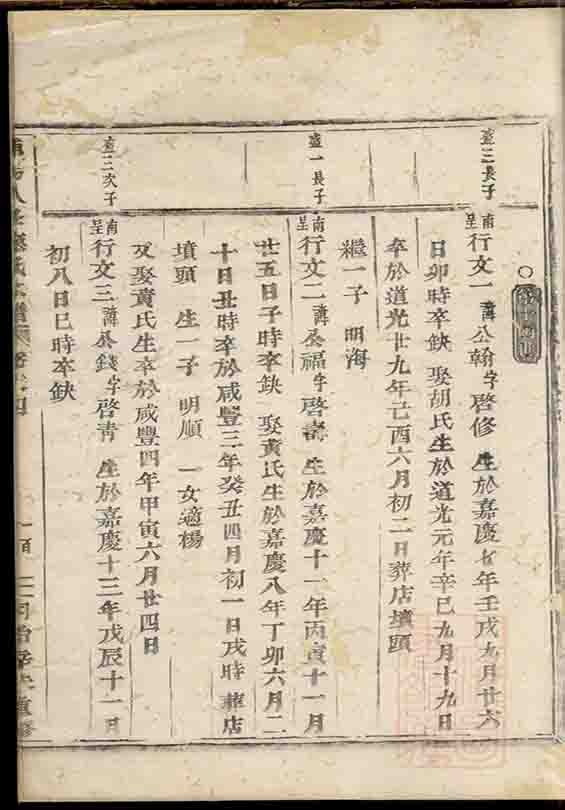 盛三長子
南呈行文一 諱公翰字啓修 生於嘉慶七年壬戌九月廿六
日卯時卒缺 娶胡氏生於道光元年辛巳九月十九日
卒於道光廿九年己酉六月初二日葬店墳頭
繼一子 明海
盛一長子
南呈行文二 諱公福字啓壽 生於嘉慶十一年丙寅十一月
廿五日子時卒缺 娶黃氏生於嘉慶八年丁卯六月二
十日丑時卒於咸豐三年癸丑四月初一日戌時葬店
墳頭 生一子 明順 一女適楊
又娶黃氏生卒於咸豐四年甲寅六月廿四日
盛三次子
南呈行文三 諱公錢字啓青 生於嘉慶十三年戊辰十一月
初八日巳時卒缺